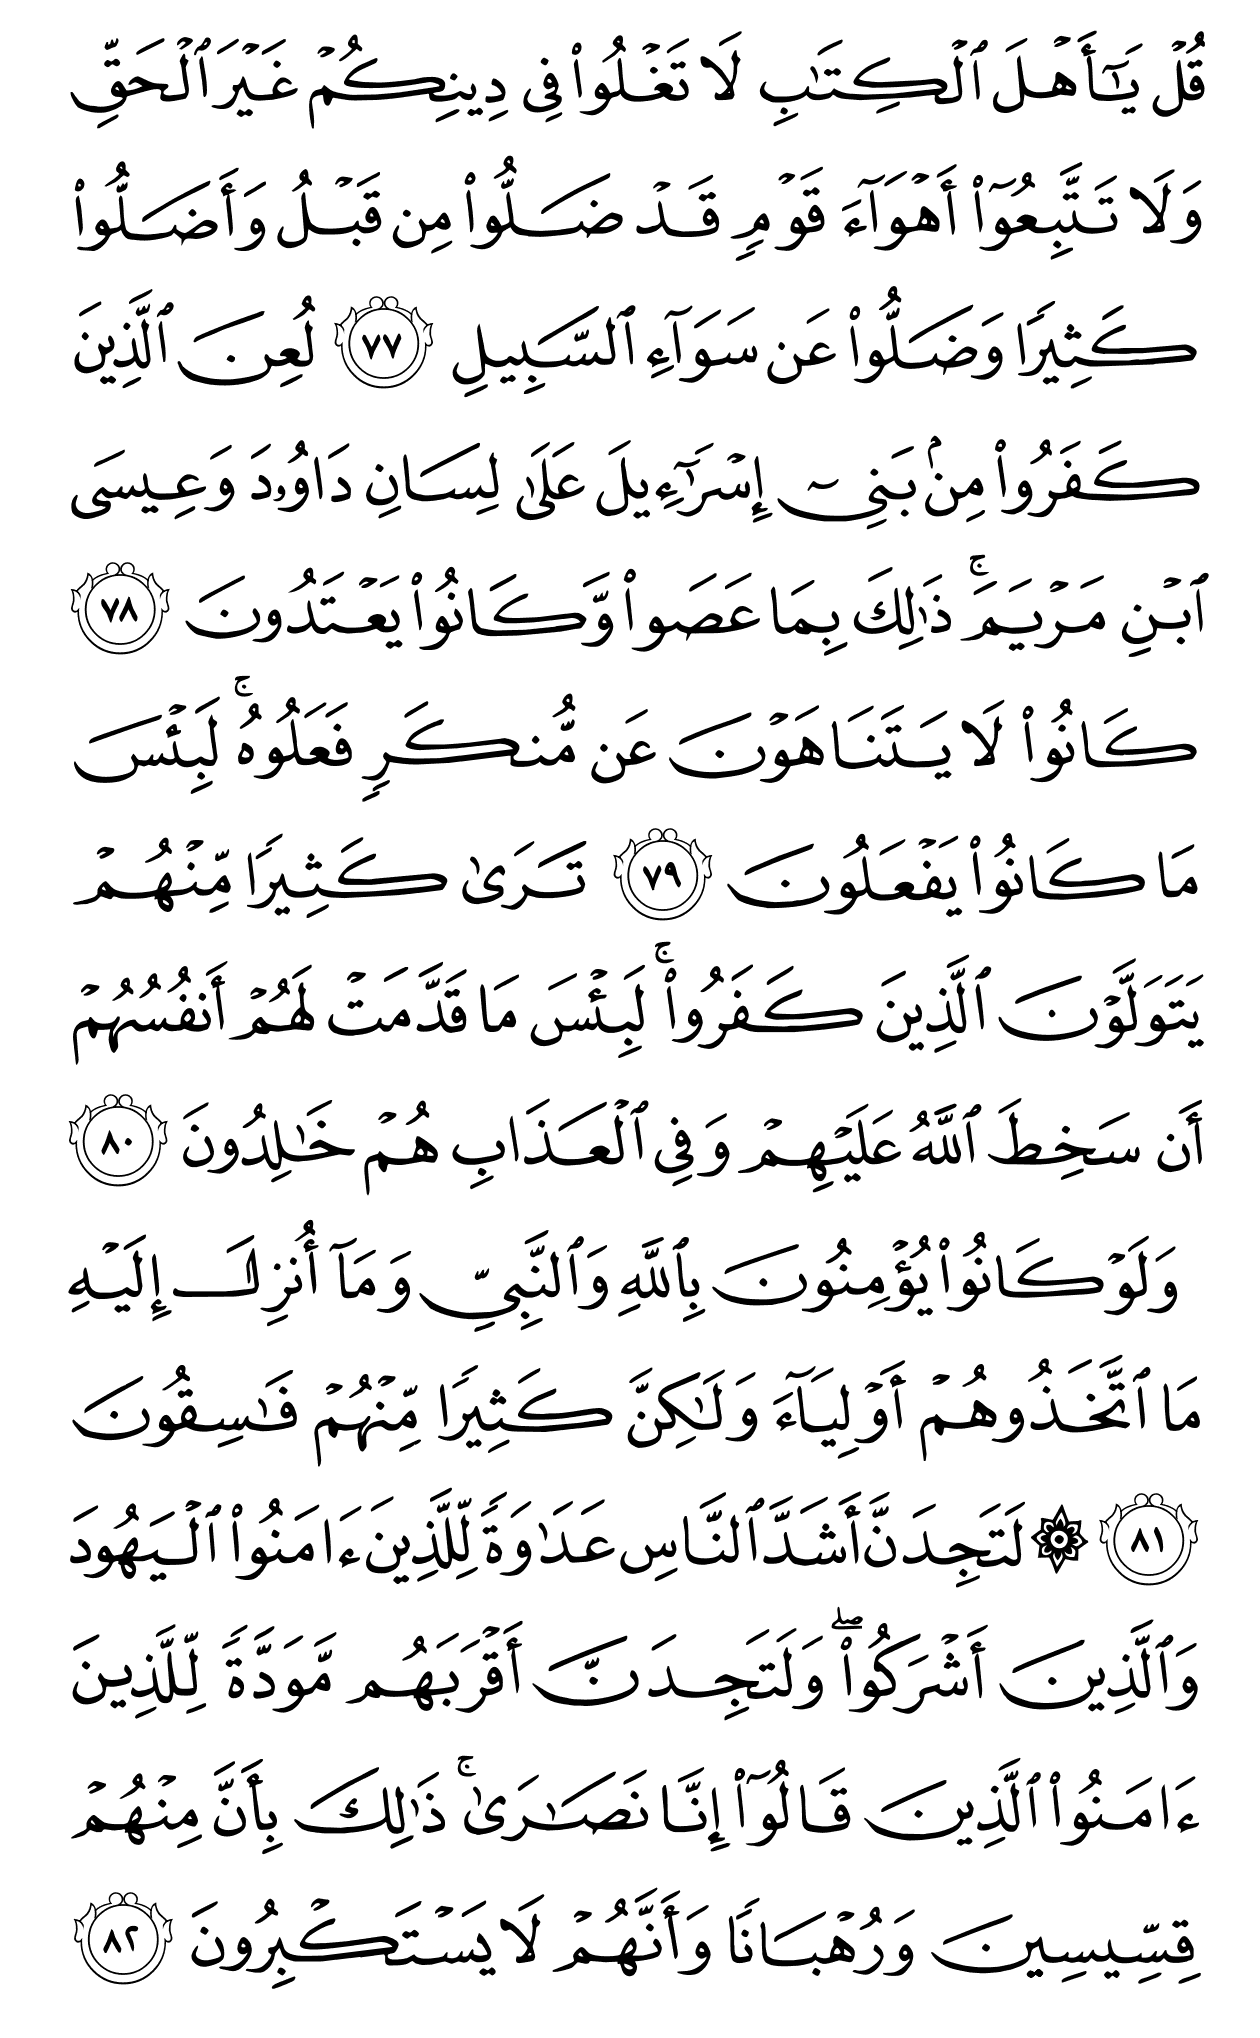 قُلْ يَـٰٓأَهْلَ ٱلْكِتَـٰبِ لَا تَغْلُوا۟ فِى دِينِكُمْ غَيْرَ ٱلْحَقِّ
وَلَا تَتَّبِعُوٓا۟ أَهْوَآءَ قَوْمٍ قَدْ ضَلُّوا۟ مِن قَبْلُ وَأَضَلُّوا۟
كَثِيرًا وَضَلُّوا۟ عَن سَوَآءِ ٱلسَّبِيلِ ٧٧ لُعِنَ ٱلَّذِينَ
كَفَرُوا۟ مِنۢ بَنِىٓ إِسْرَٰٓءِيلَ عَلَىٰ لِسَانِ دَاوُۥدَ وَعِيسَى
ٱبْنِ مَرْيَمَ ۚ ذَٰلِكَ بِمَا عَصَوا۟ وَّكَانُوا۟ يَعْتَدُونَ ٧٨
كَانُوا۟ لَا يَتَنَاهَوْنَ عَن مُّنكَرٍ فَعَلُوهُ ۚ لَبِئْسَ
مَا كَانُوا۟ يَفْعَلُونَ ٧٩ تَرَىٰ كَثِيرًا مِّنْهُمْ
يَتَوَلَّوْنَ ٱلَّذِينَ كَفَرُوا۟ ۚ لَبِئْسَ مَا قَدَّمَتْ لَهُمْ أَنفُسُهُمْ
أَن سَخِطَ ٱللَّهُ عَلَيْهِمْ وَفِى ٱلْعَذَابِ هُمْ خَـٰلِدُونَ ٨٠
وَلَوْ كَانُوا۟ يُؤْمِنُونَ بِٱللَّهِ وَٱلنَّبِىِّ وَمَآ أُنزِلَ إِلَيْهِ
مَا ٱتَّخَذُوهُمْ أَوْلِيَآءَ وَلَـٰكِنَّ كَثِيرًا مِّنْهُمْ فَـٰسِقُونَ
٨١ ۞ لَتَجِدَنَّ أَشَدَّ ٱلنَّاسِ عَدَٰوَةً لِّلَّذِينَ ءَامَنُوا۟ ٱلْيَهُودَ
وَٱلَّذِينَ أَشْرَكُوا۟ ۖ وَلَتَجِدَنَّ أَقْرَبَهُم مَّوَدَّةً لِّلَّذِينَ
ءَامَنُوا۟ ٱلَّذِينَ قَالُوٓا۟ إِنَّا نَصَـٰرَىٰ ۚ ذَٰلِكَ بِأَنَّ مِنْهُمْ
قِسِّيسِينَ وَرُهْبَانًا وَأَنَّهُمْ لَا يَسْتَكْبِرُونَ ٨٢